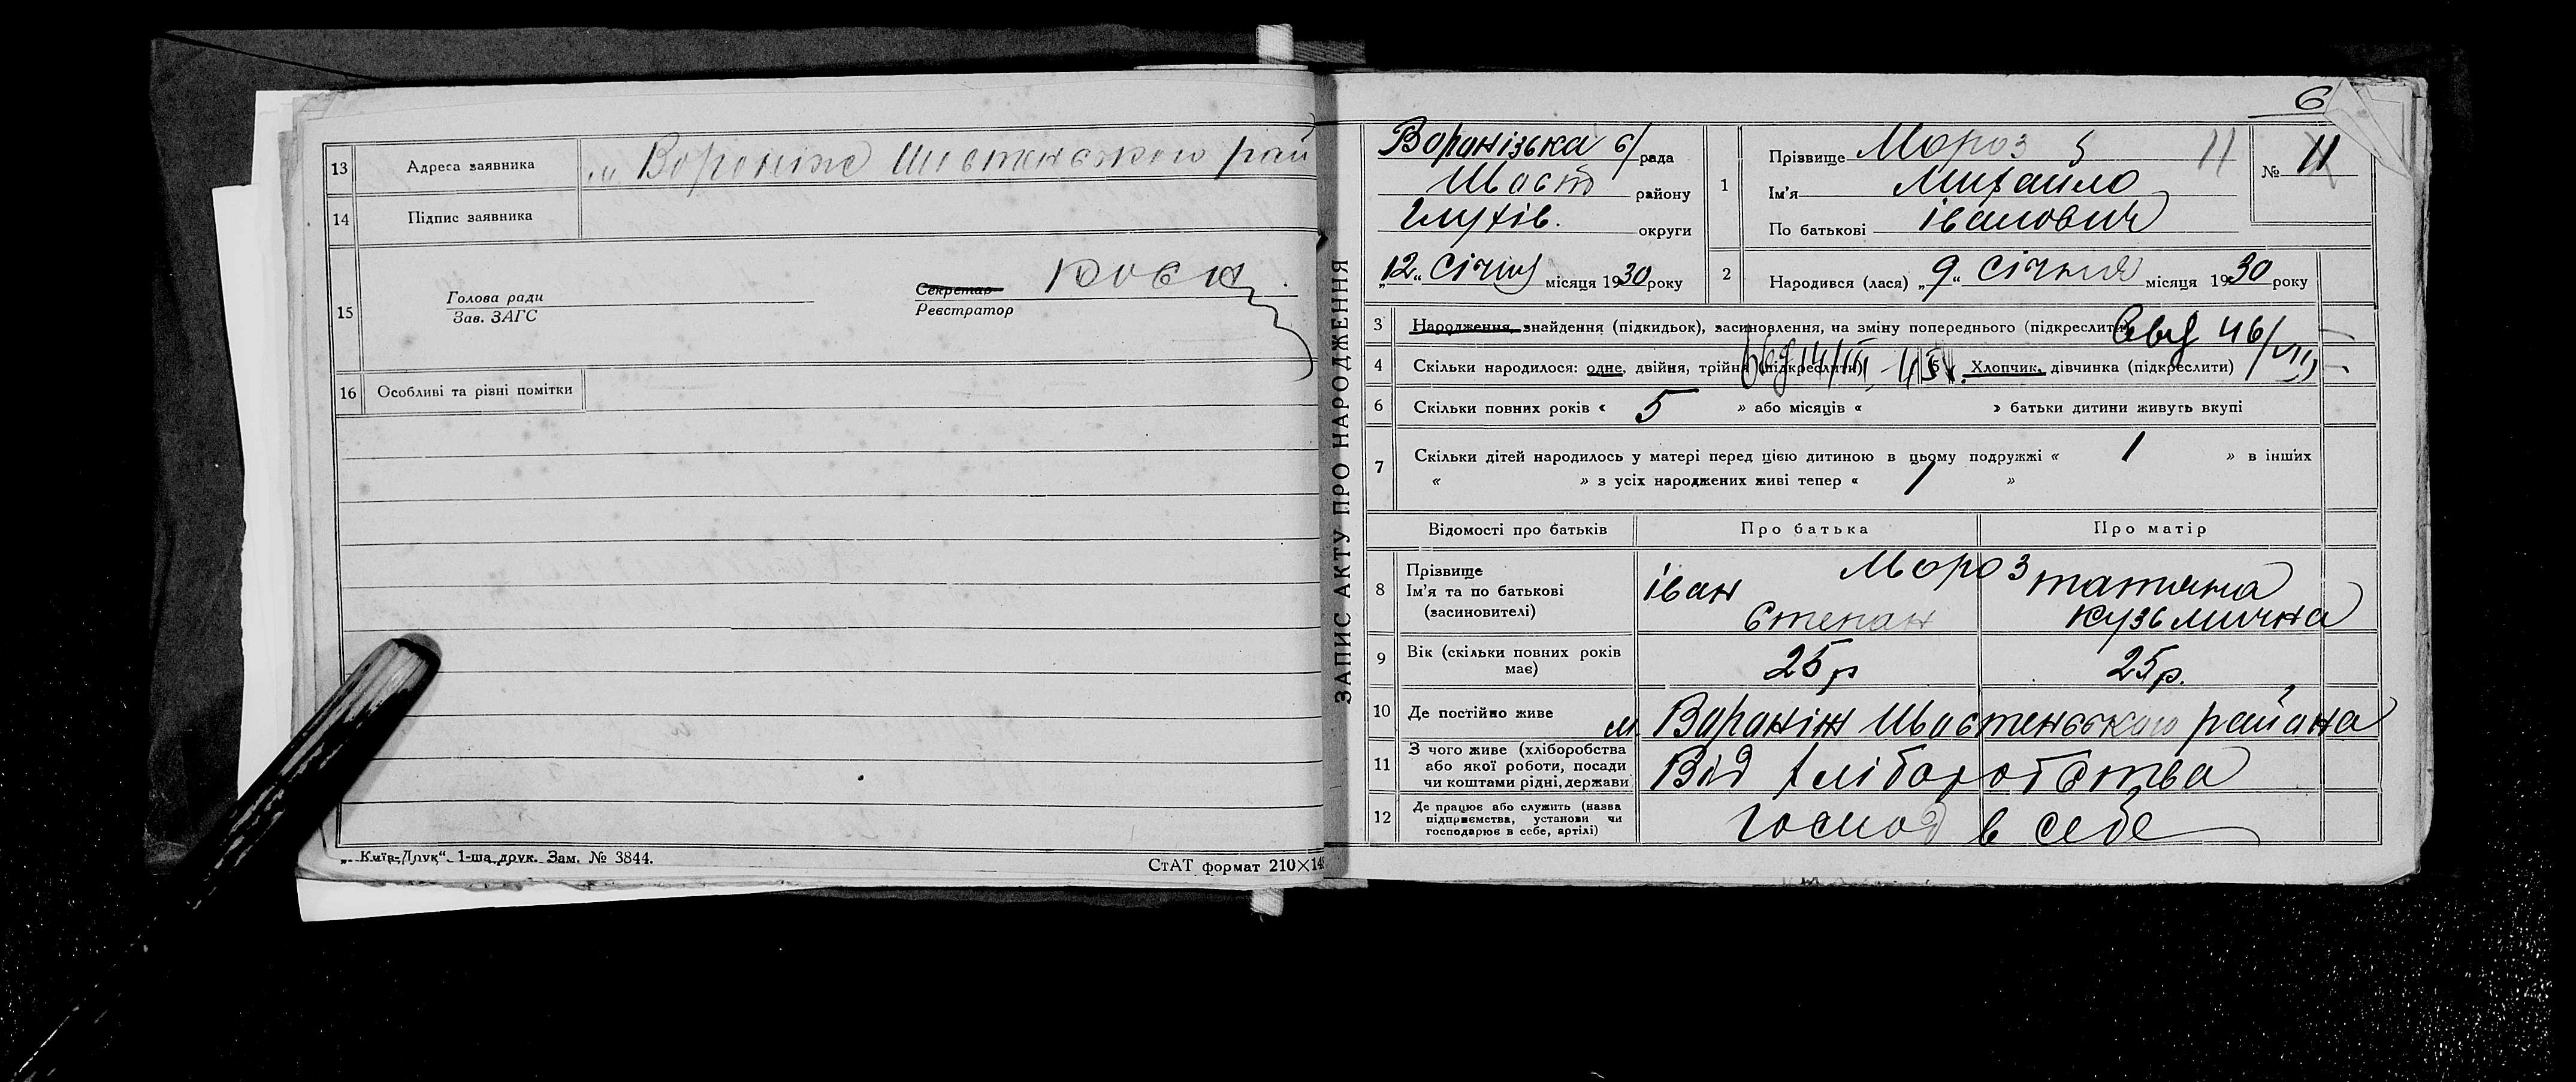 13 Адреса заявника м Вороніж Шостенського рай
14 Підпис заявника
15 Голова ради
Зав. ЗАГС
Секретар
Реєстратор
16 Особливі та різні помітки
„Київ-Друк“ 1-ша друк. Зам. № 3844.
СтАТ формат 210×14
ЗАПИС АКТУ ПРО НАРОДЖЕННЯ
6
Воранізька с/рада
Шост району
Глухів. округи
„12“ Січня місяця 1930 року
1 Прізвище Мороз 11
Ім'я Михайло
По батькові івановича
№ 11
2 Народився (лася) „9“ Січня місяця 1930 року
3 Народження, знайдення (підкидьок), засиновлення, на зміну попереднього (підкреслити)
4 Скільки народилося: одне, двійня, трійня (підкреслити) 5 Хлопчик, дівчинка (підкреслити)
6 Скільки повних років « 5 » або місяців « » батьки дитини живуть вкупі
7 Скільки дітей народилось у матері перед цією дитиною в цьому подружжі « 1 » в інших
« » з усіх народжених живі тепер « 1 »
Відомості про батьків Про батька Про матір
8 Прізвище Мороз
Ім'я та по батькові іван татяна
(засиновителі) Степан кузьмична
9 Вік (скільки повних років має) 25р 25р.
10 Де постійно живе м. Вораніж Шостенського района
11 З чого живе (хліборобства
або якої роботи, посади
чи коштами рідні, держави Від хліборобства
12 Де працює або служить (назва
підприємства, установи чи
господарює в себе, артілі) господ в себе